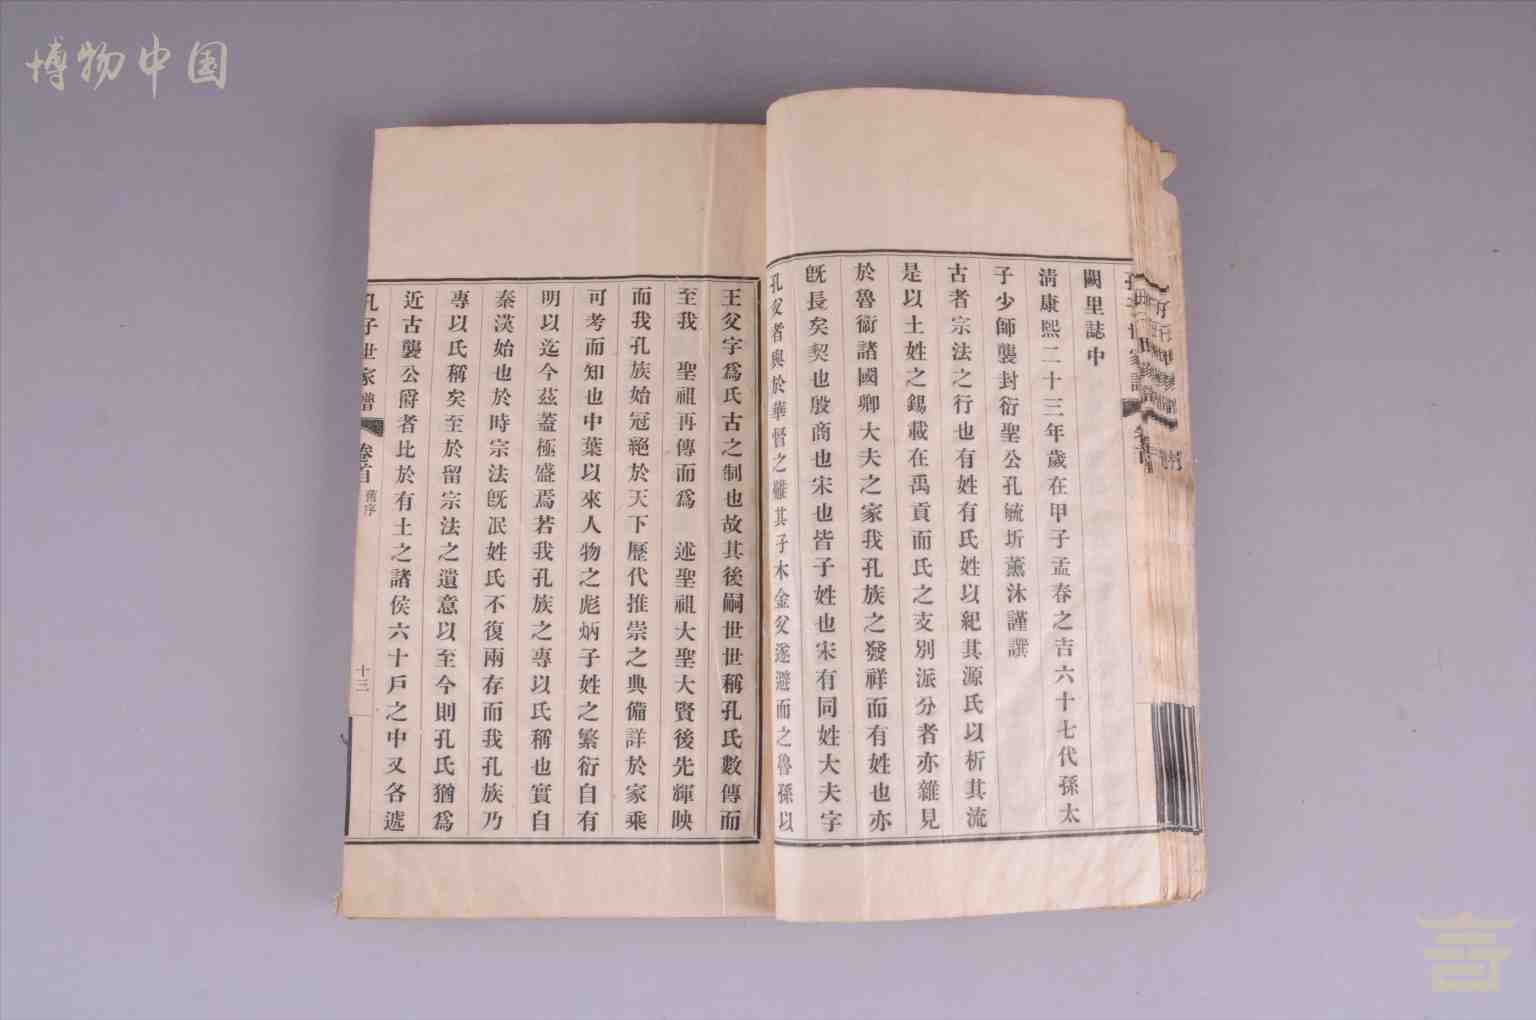 博物中国
闕里誌中
清康熙二十三年歲在甲子孟春之吉六十七代孫太
子少師襲封衍聖公孔毓圻薰沐謹譔
古者宗法之行也有姓有氏姓以紀其源氏以析其流
是以土姓之錫載在禹貢而氏之支別派分者亦雜見
於魯衞諸國卿大夫之家我孔族之發祥而有姓也亦
旣長矣契也殷商也宋也皆子姓也宋有同姓大夫字
孔父者與於華督之難其子木金父遂避而之魯孫以
王父字爲氏古之制也故其後嗣世世稱孔氏數傳而
至我 聖祖再傳而爲 述聖祖大聖大賢後先輝映
而我孔族始冠絕於天下歷代推崇之典備詳於家乘
可考而知也中葉以來人物之彪炳子姓之繁衍自有
明以迄今茲蓋極盛焉若我孔族之專以氏稱也實自
秦漢始也於時宗法旣泯姓氏不復兩存而我孔族乃
專以氏稱矣至於留宗法之遺意以至今則孔氏猶爲
近古襲公爵者比於有土之諸侯六十戶之中又各遞
孔子世家譜 卷首 舊序 十三